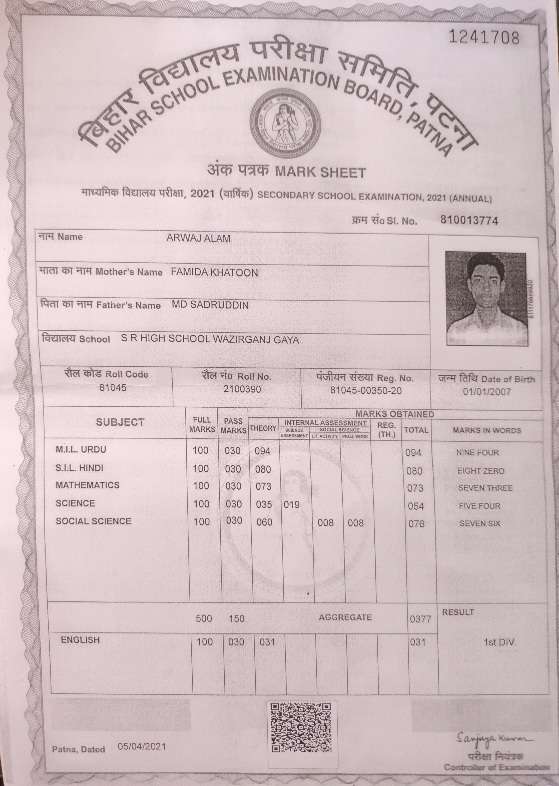 1241708
बिहार विद्यालय परीक्षा समिति, पटना
BIHAR SCHOOL EXAMINATION BOARD, PATNA
अंक पत्रक MARK SHEET
माध्यमिक विद्यालय परीक्षा, 2021 (वार्षिक) SECONDARY SCHOOL EXAMINATION, 2021 (ANNUAL)
क्रम सं० Sl. No. 810013774
नाम Name ARWAJ ALAM
माता का नाम Mother's Name FAMIDA KHATOON
पिता का नाम Father's Name MD SADRUDDIN
विद्यालय School S R HIGH SCHOOL WAZIRGANJ GAYA
रौल कोड Roll Code रौल नं० Roll No. पंजीयन संख्या Reg. No. जन्म तिथि Date of Birth
81045 2100390 81045-00350-20 01/01/2007
MARKS OBTAINED
SUBJECT FULL MARKS PASS MARKS THEORY INTERNAL ASSESSMENT REG. (TH.) TOTAL MARKS IN WORDS
SCIENCE ASSESSMENT SOCIAL SCIENCE LIT. ACTIVITY PROJ. WORK
M.I.L. URDU 100 030 094 094 NINE FOUR
S.I.L. HINDI 100 030 080 080 EIGHT ZERO
MATHEMATICS 100 030 073 073 SEVEN THREE
SCIENCE 100 030 035 019 054 FIVE FOUR
SOCIAL SCIENCE 100 030 060 008 008 076 SEVEN SIX
500 150 AGGREGATE 0377 RESULT
ENGLISH 100 030 031 031 1st DIV.
Patna, Dated 05/04/2021
Sanjay Kumar
परीक्षा नियंत्रक
Controller of Examination